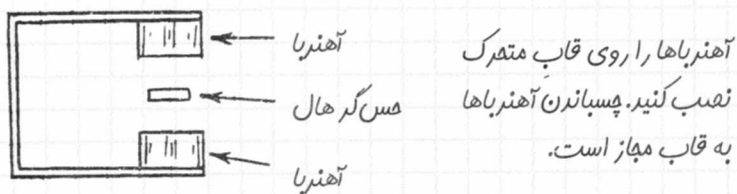 آهنربا
حس‌گر هال
آهنربا
آهنرباها را روی قابِ متحرک
نصب کنید. چسباندن آهنرباها
به قاب مجاز است.